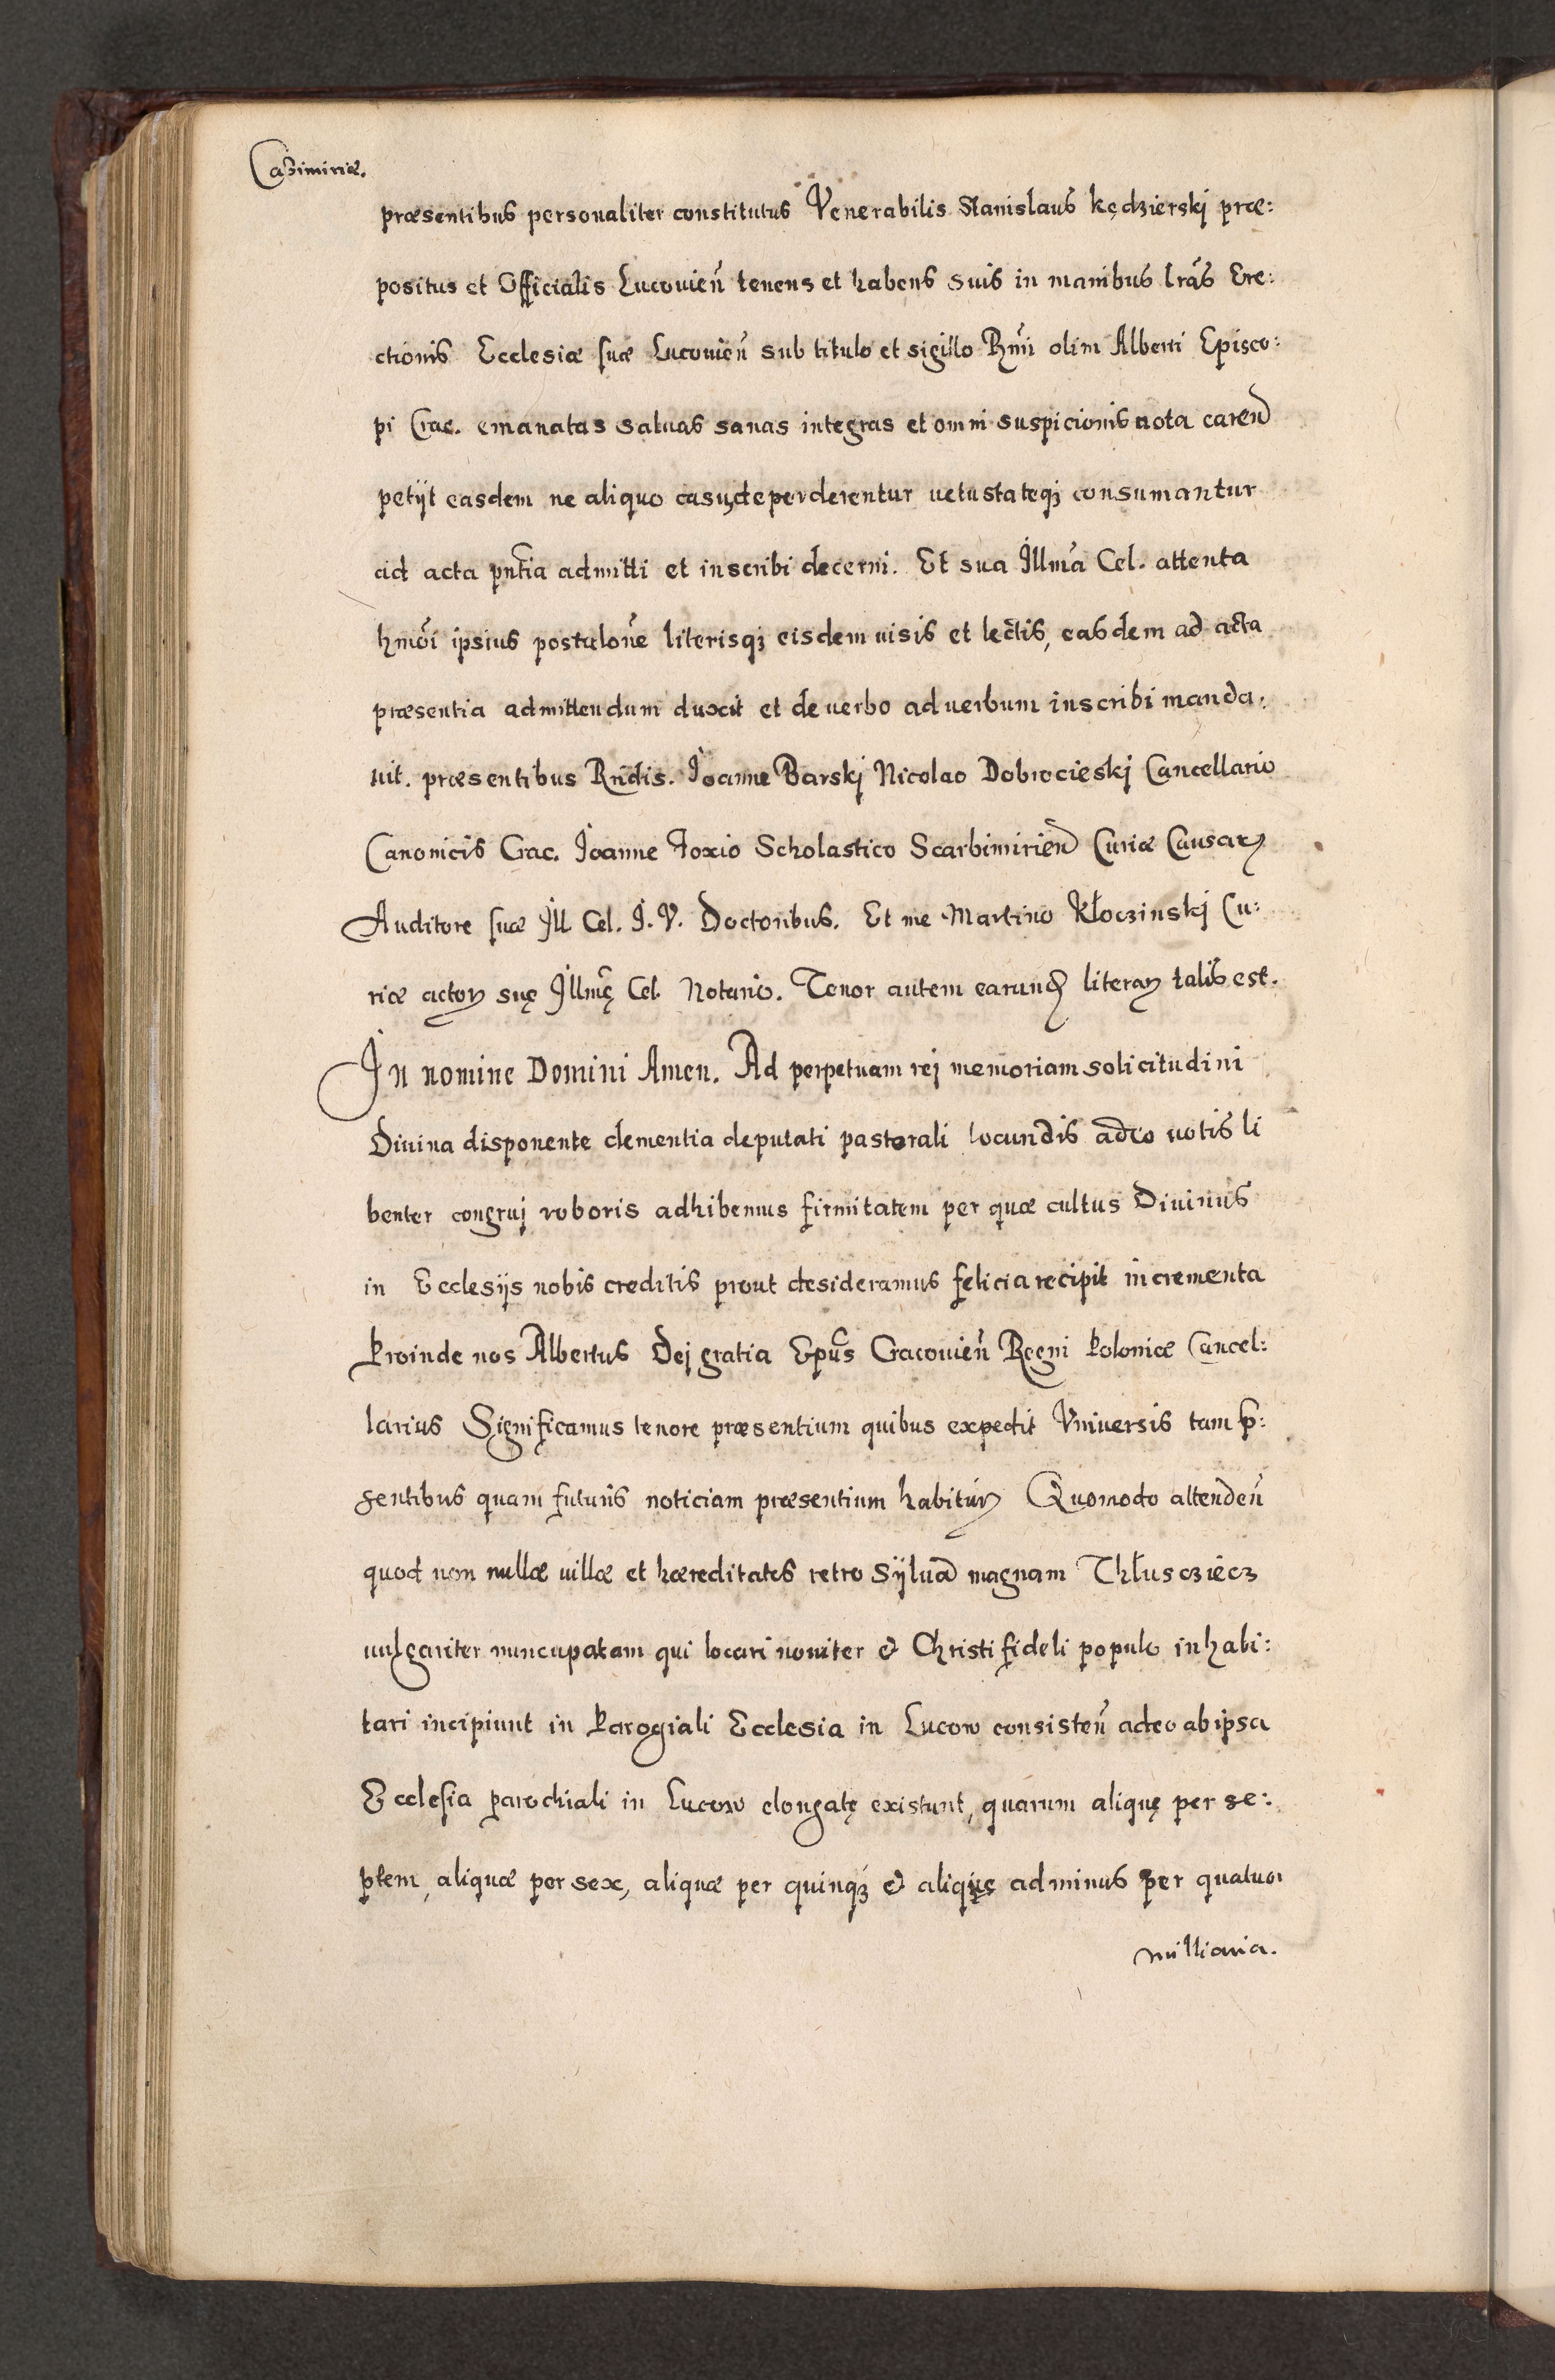 Casimiriæ.
præsentibus personaliter constitutus Venerabilis Stanislaus kędzierskj præ:
positus et Officialis Lucouieñ tenens et habens suis in manibus lr̃as Ere:
ctionis Ecclesiæ suæ Lucouieñ sub titulo et sigillo Rm̃i olim Alberti Episco:
pi Crac. emanatas saluas sanas integras et omni suspicionis nota careñd
petijt easdem ne aliquo casu deperderentur uetustateqꝫ consumantur
ad acta pñtia admitti et inscribi decerni. Et sua Illm̃a Cel. attenta
hmõi ipsius postuloñe literisqꝫ eisdem uisis et lectis, easdem ad acta
præsentia admittendum duxit et de uerbo ad uerbum inscribi manda:
uit. præsentibus Rñdis. Ioanne Barskj Nicolao Dobrocieskj Cancellario
Canonicis Crac. Ioanne Foxio Scholastico Scarbimirieñ Curiæ Causaꝝ
Auditore suæ Ill Cel. I. V. Doctoribus. Et me Martino Kłoczinskj Cu:
riæ actoꝝ suę Illmę̃ Cel. Notario. Tenor autem earunđ literaꝝ talis est.
In nomine Domini Amen. Ad perpetuam rej memoriam solicitudini
Diuina disponente clementia deputati pastorali Iocundis adeo uotis li
benter congruj roboris adhibemus firmitatem per quæ cultus Diuinus
in Ecclesijs nobis creditis prout desideramus felicia recipit incrementa
Proinde nos Albertus Dej gratia Epũs Cracouieñ Regni Poloniæ Cancel:
larius Significamus tenore præsentium quibus expedit Vniuersis tam p̃:
sentibus quam futuris noticiam præsentium habituꝝ Quomodo attendeñ
quod non nullæ uillæ et hæreditates retro Sÿluã magnam Thłuscziecz
uulgariter nuncupatam qui locari nouiter & Christi fideli populo inhabi:
tari incipiunt in Parogiali Ecclesia in Lucow consisteñ adeo ab ipsa
Ecclesia parochiali in Lucow elongatę existunt, quarum aliquę per se:
ptem, aliquæ per sex, aliquæ per quinqꝫ & aliquę ad minus per quatuor
milliaria.